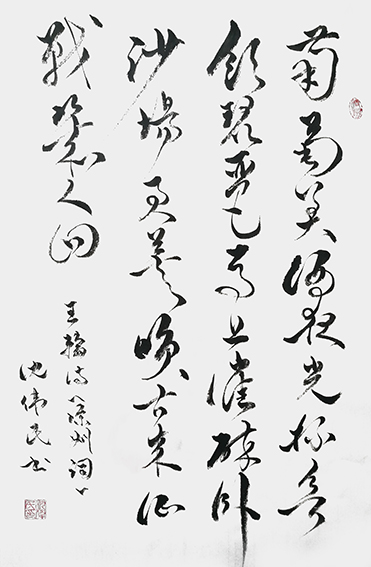 葡萄美酒夜光杯欲
饮琵琶马上催醉卧
沙場君莫笑古来征
战幾人回
王翰诗《凉州词》
沈伟民书